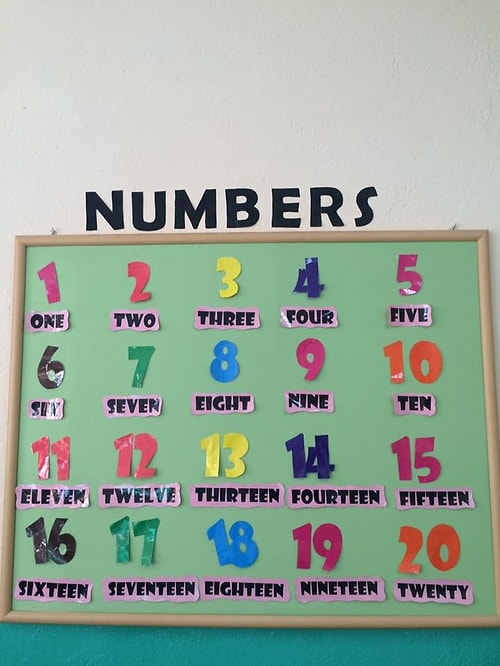 NUMBERS
1 2 3 4 5
ONE TWO THREE FOUR FIVE
6 7 8 9 10
SIX SEVEN EIGHT NINE TEN
11 12 13 14 15
ELEVEN TWELVE THIRTEEN FOURTEEN FIFTEEN
16 17 18 19 20
SIXTEEN SEVENTEEN EIGHTEEN NINETEEN TWENTY